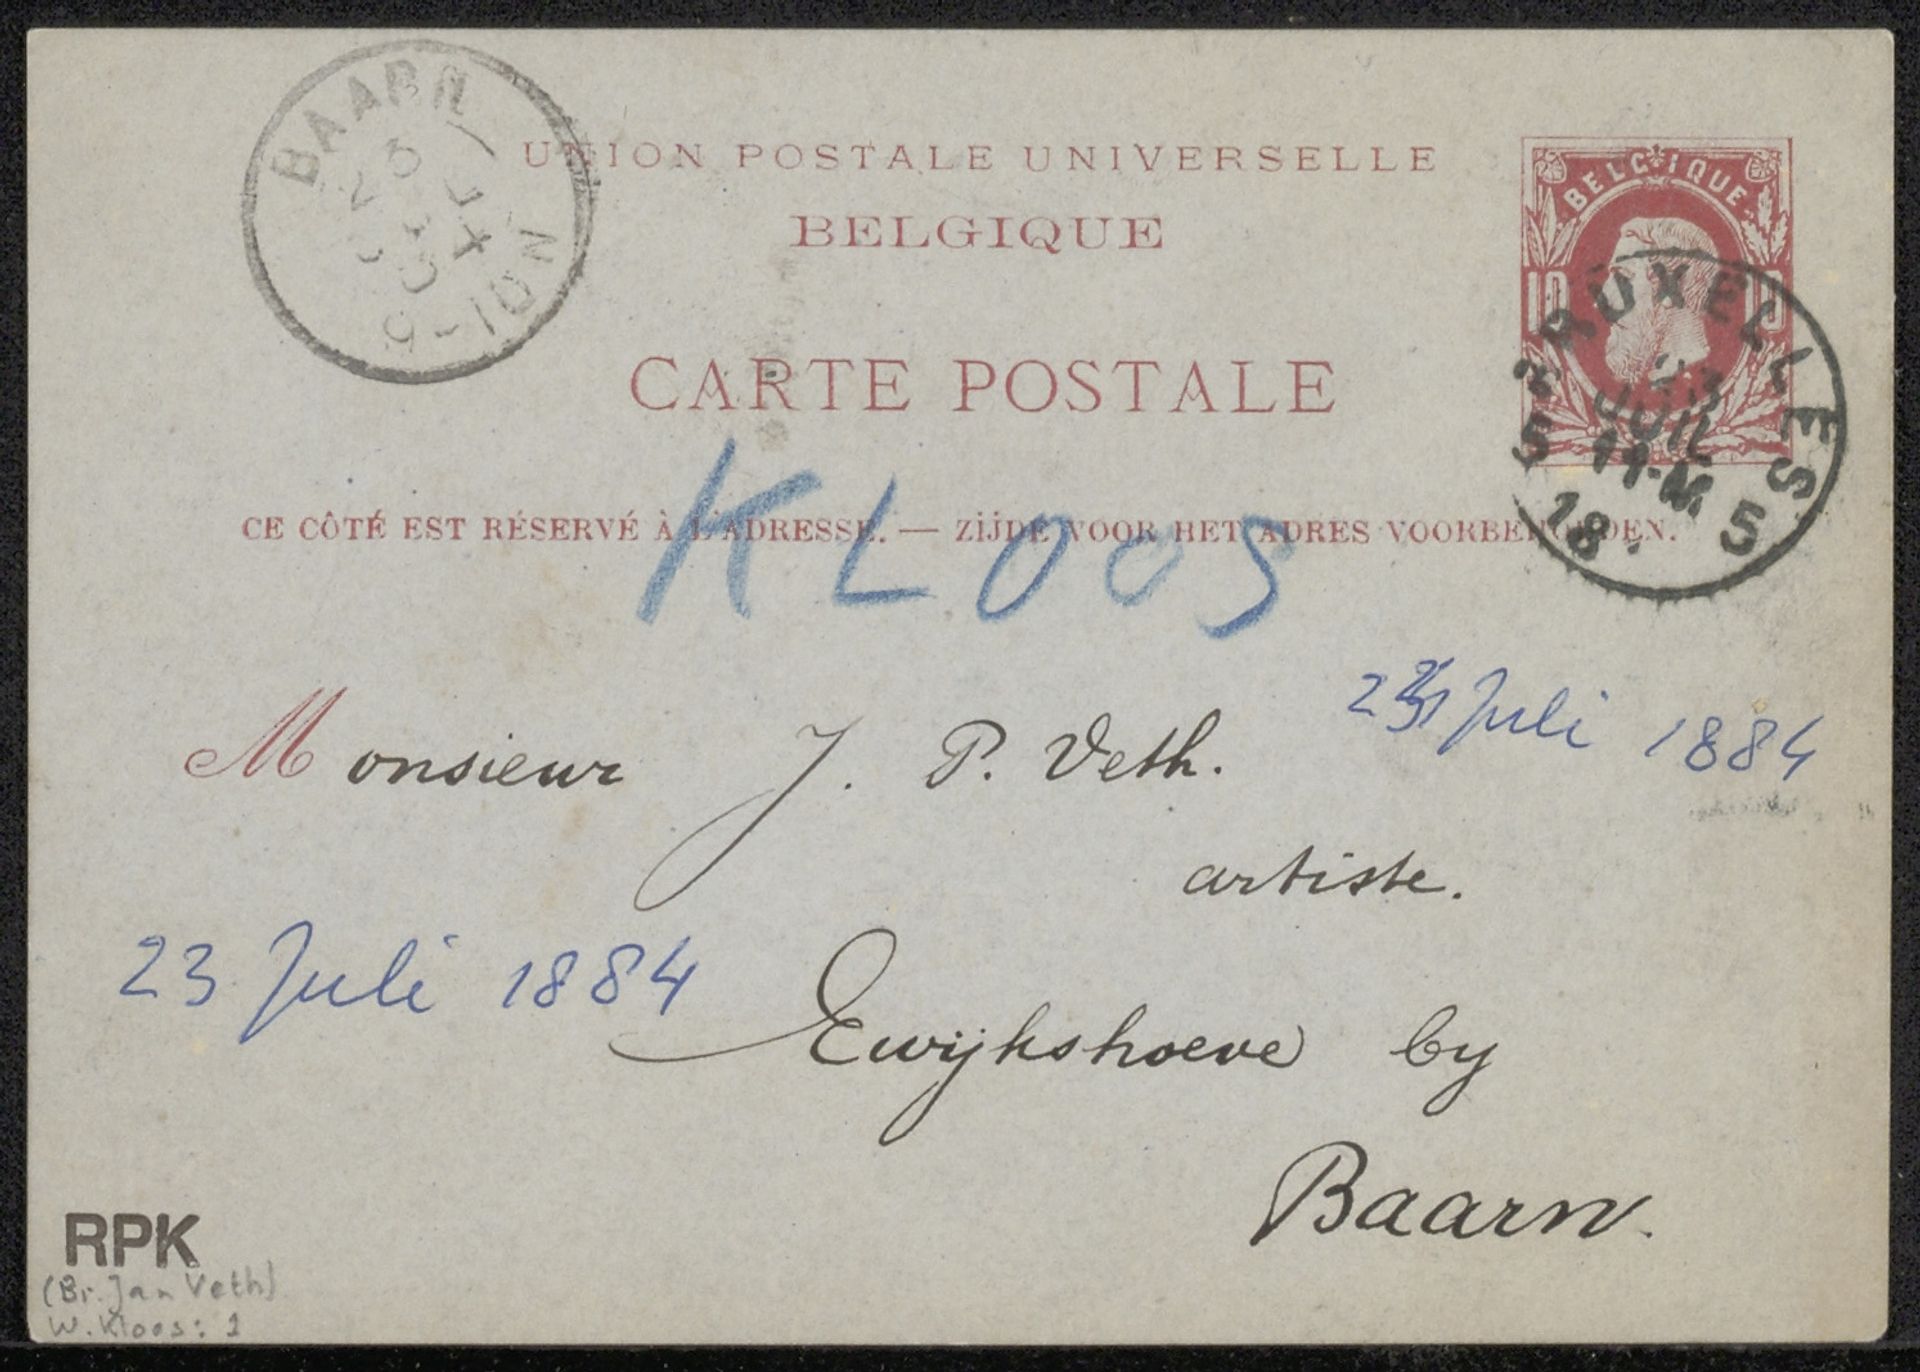 BAARN
9-10N
UNION POSTALE UNIVERSELLE
BELGIQUE
CARTE POSTALE
BELGIQUE
10
BRUXELLES
23
JUIL
11-M
5 5
18
KLOOS
CE CÔTÉ EST RÉSERVÉ À L'ADRESSE. — ZIJDE VOOR HET ADRES VOORBEHOUDEN.
Juli 1884
Monsieur J. P. Veth.
artiste.
23 Juli 1884
Ewijkshoeve by
Baarn.
RPK
(Br. Jan Veth)
W. Kloos: 1